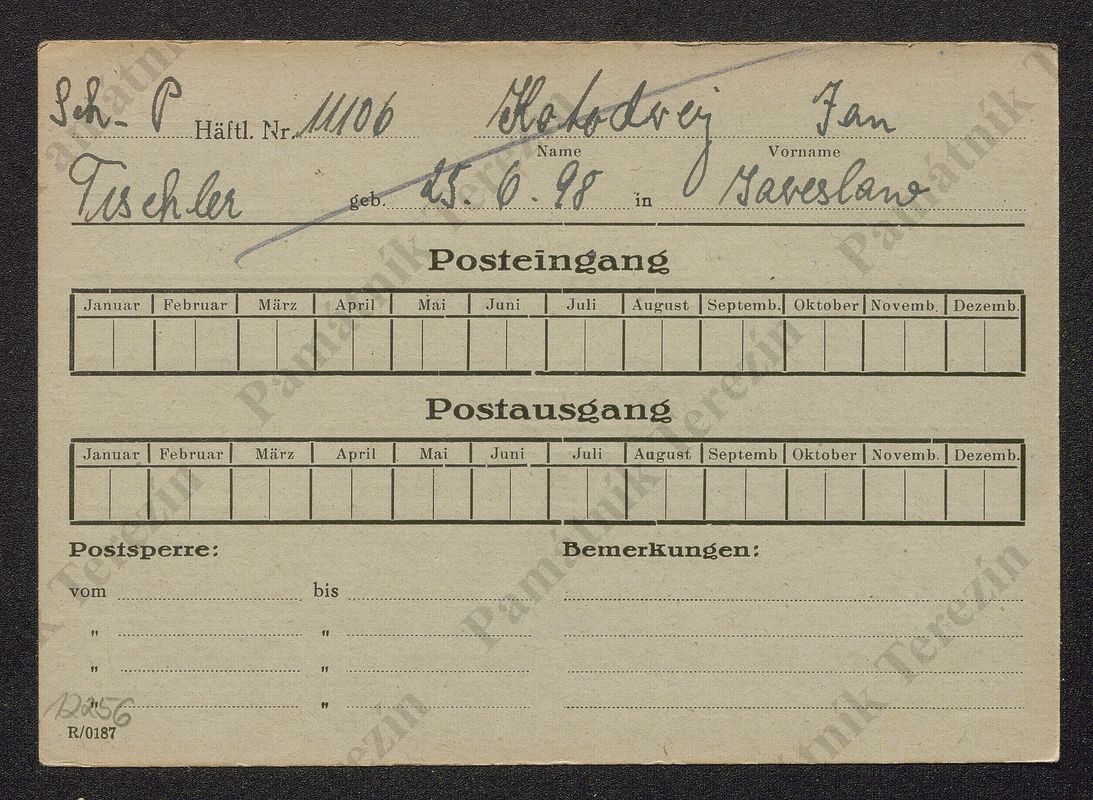 Sch-P Häftl. Nr. 11106 Kołodziej Jan
Name Vorname
Tischler geb. 25. 6. 98 in Jaroslaw
Posteingang
Januar Februar März April Mai Juni Juli August Septemb. Oktober Novemb. Dezemb.
Postausgang
Januar Februar März April Mai Juni Juli August Septemb Oktober Novemb. Dezemb.
Postsperre: Bemerkungen:
vom bis
" "
" "
" "
12256
R/0187
Památník Terezín